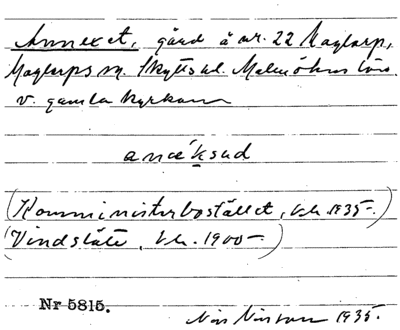 Annexet, gård å nr. 22 Maglarp,
Maglarps sn. Skytts hd. Malmöhus län
v. gamla kyrkan
(Komministerbostället, 1935.)
(Vindslätt, 1900-)
Nr 5815.
Nils Nilsson 1935.